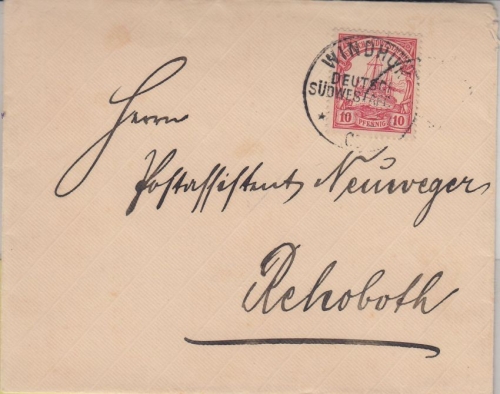 WINDHUK
DEUTSCH
SÜDWESTAFR.
10 PFENNIG 10
Herrn
Postassistent Neuweger
Rehoboth